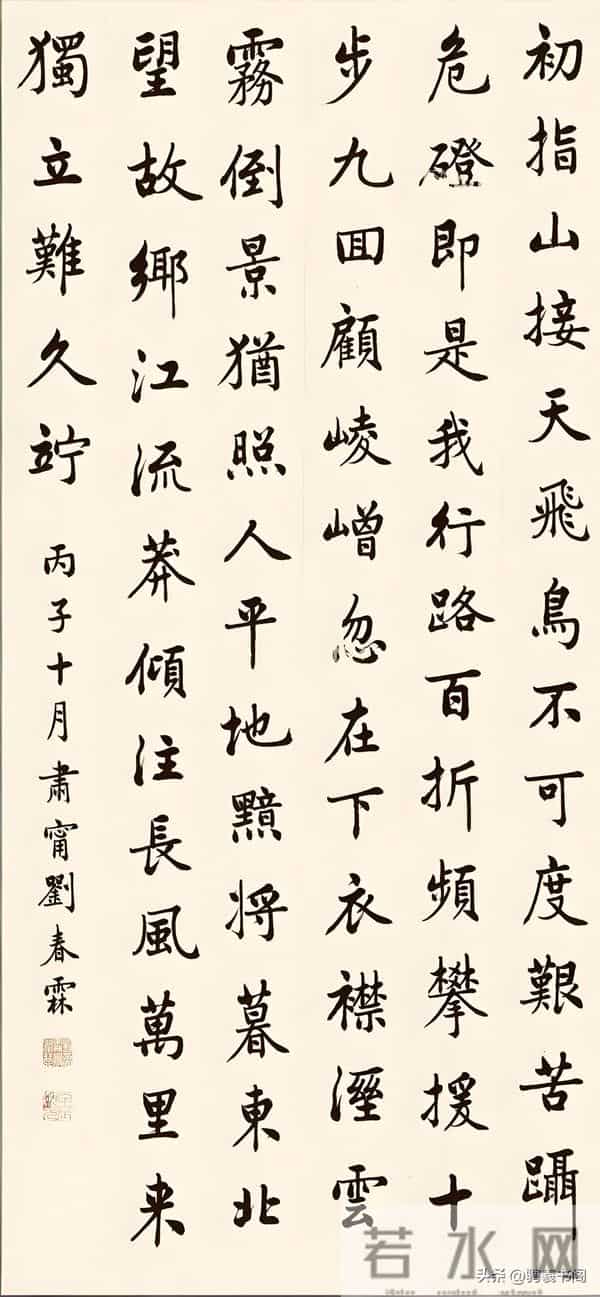 初指山接天飛鳥不可度艱苦躡
危磴即是我行路百折頻攀援十
步九囬顧崚嶒忽在下衣襟溼雲
霧倒景猶照人平地黯將暮東北
望故鄉江流莽傾注長風萬里来
獨立難久竚
丙子十月肅甯劉春霖
若水网
头条